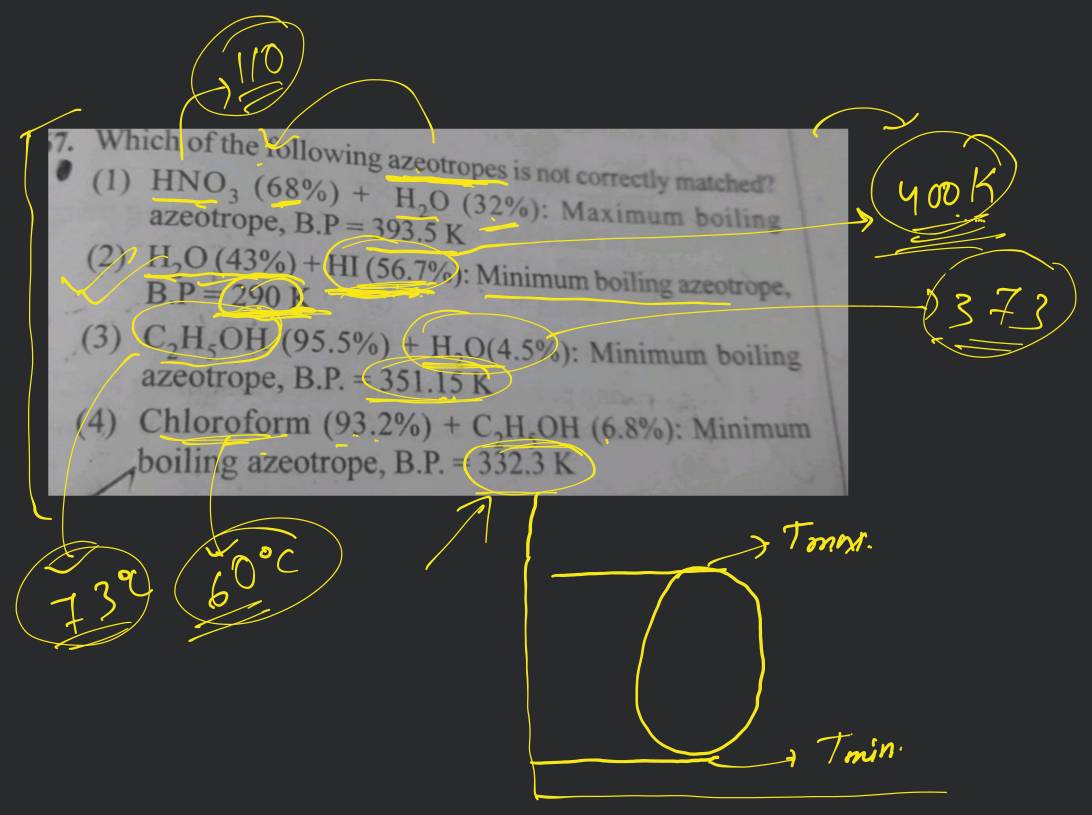 110
57. Which of the following azeotropes is not correctly matched?
(1) HNO₃ (68%) + H₂O (32%): Maximum boiling
azeotrope, B.P = 393.5 K
400K
(2) H₂O (43%) + HI (56.7%): Minimum boiling azeotrope,
B.P = 290 K
373
(3) C₂H₅OH (95.5%) + H₂O(4.5%): Minimum boiling
azeotrope, B.P. = 351.15 K
(4) Chloroform (93.2%) + C₂H₅OH (6.8%): Minimum
boiling azeotrope, B.P. = 332.3 K
73°C
60°C
Tmax.
Tmin.